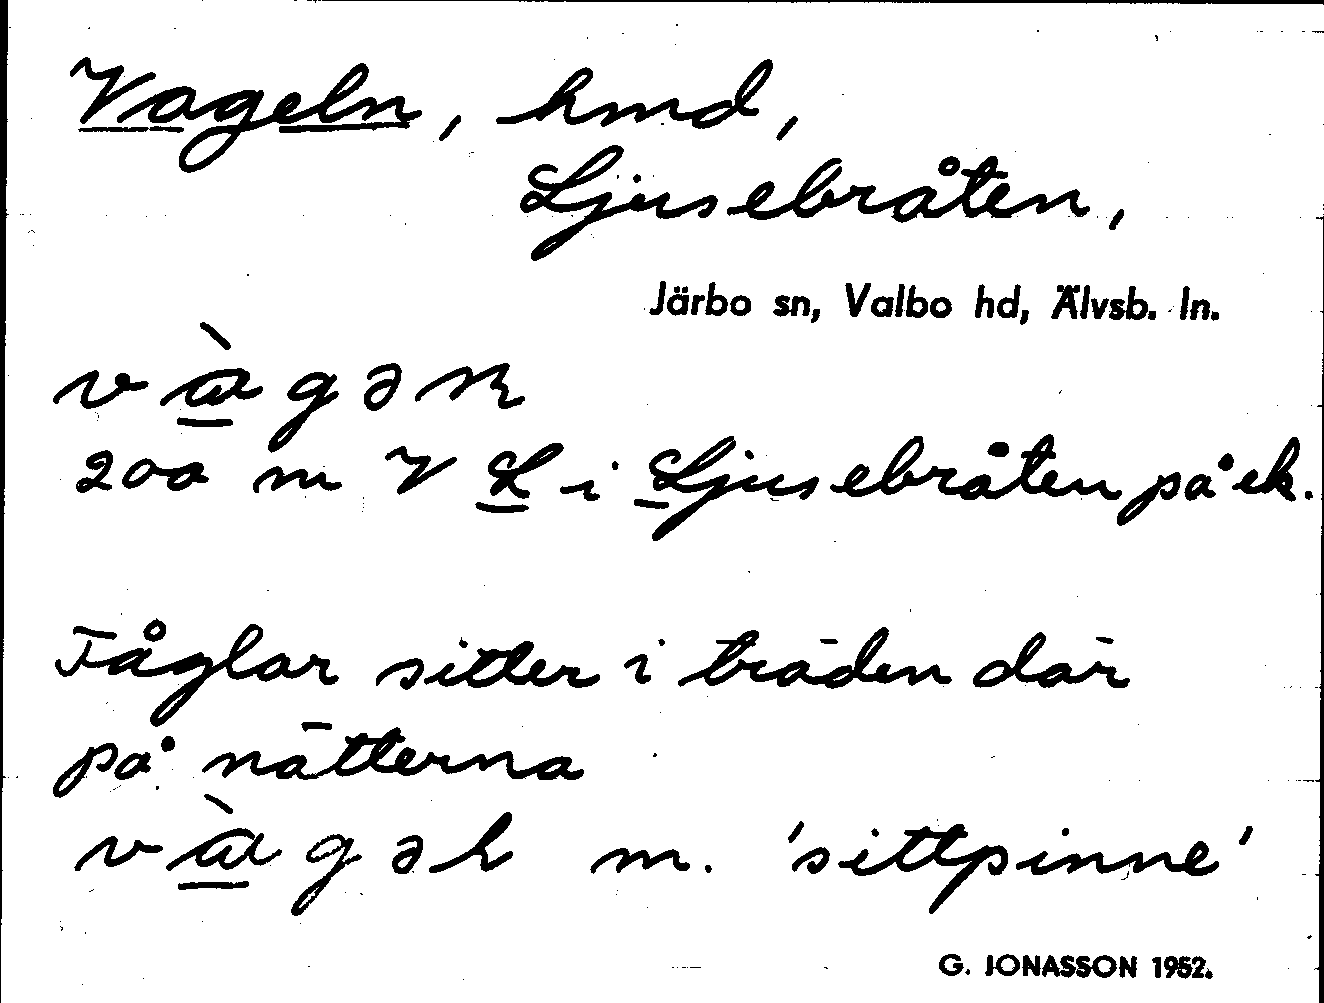 Vageln, hmd,
Ljusebråten,
Järbo sn, Valbo hd, Älvsb. ln.
200 m V L i Ljusebråten på ek.
Fåglar sitter i träden där
på nätterna
m. 'sittpinne'
G. JONASSON 1952.